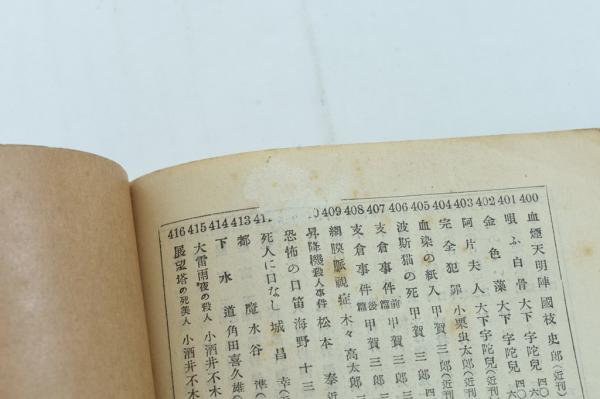 400 血煙天明陣 國枝史郎(近刊)
401 唄ふ白骨 大下宇陀兒 四六
402 金色藻 大下宇陀兒 四六
403 阿片夫人 大下宇陀兒(近刊
404 完全犯罪 小栗虫太郎(近刊
405 血染の紙入 甲賀三郎
406 波斯猫の死 甲賀三郎
407 支倉事件前篇 甲賀三郎 三
408 支倉事件後篇 甲賀三郎
409 網膜脈視症 木々高太郎(近
10 昇降機殺人事件 松本泰(近
恐怖の口笛 海野十三
死人に口なし 城昌幸(
413 都魔 水谷準(近
414 下水道 角田喜久雄(
415 大雷雨夜の殺人 小酒井不木
416 展望塔の死美人 小酒井不木